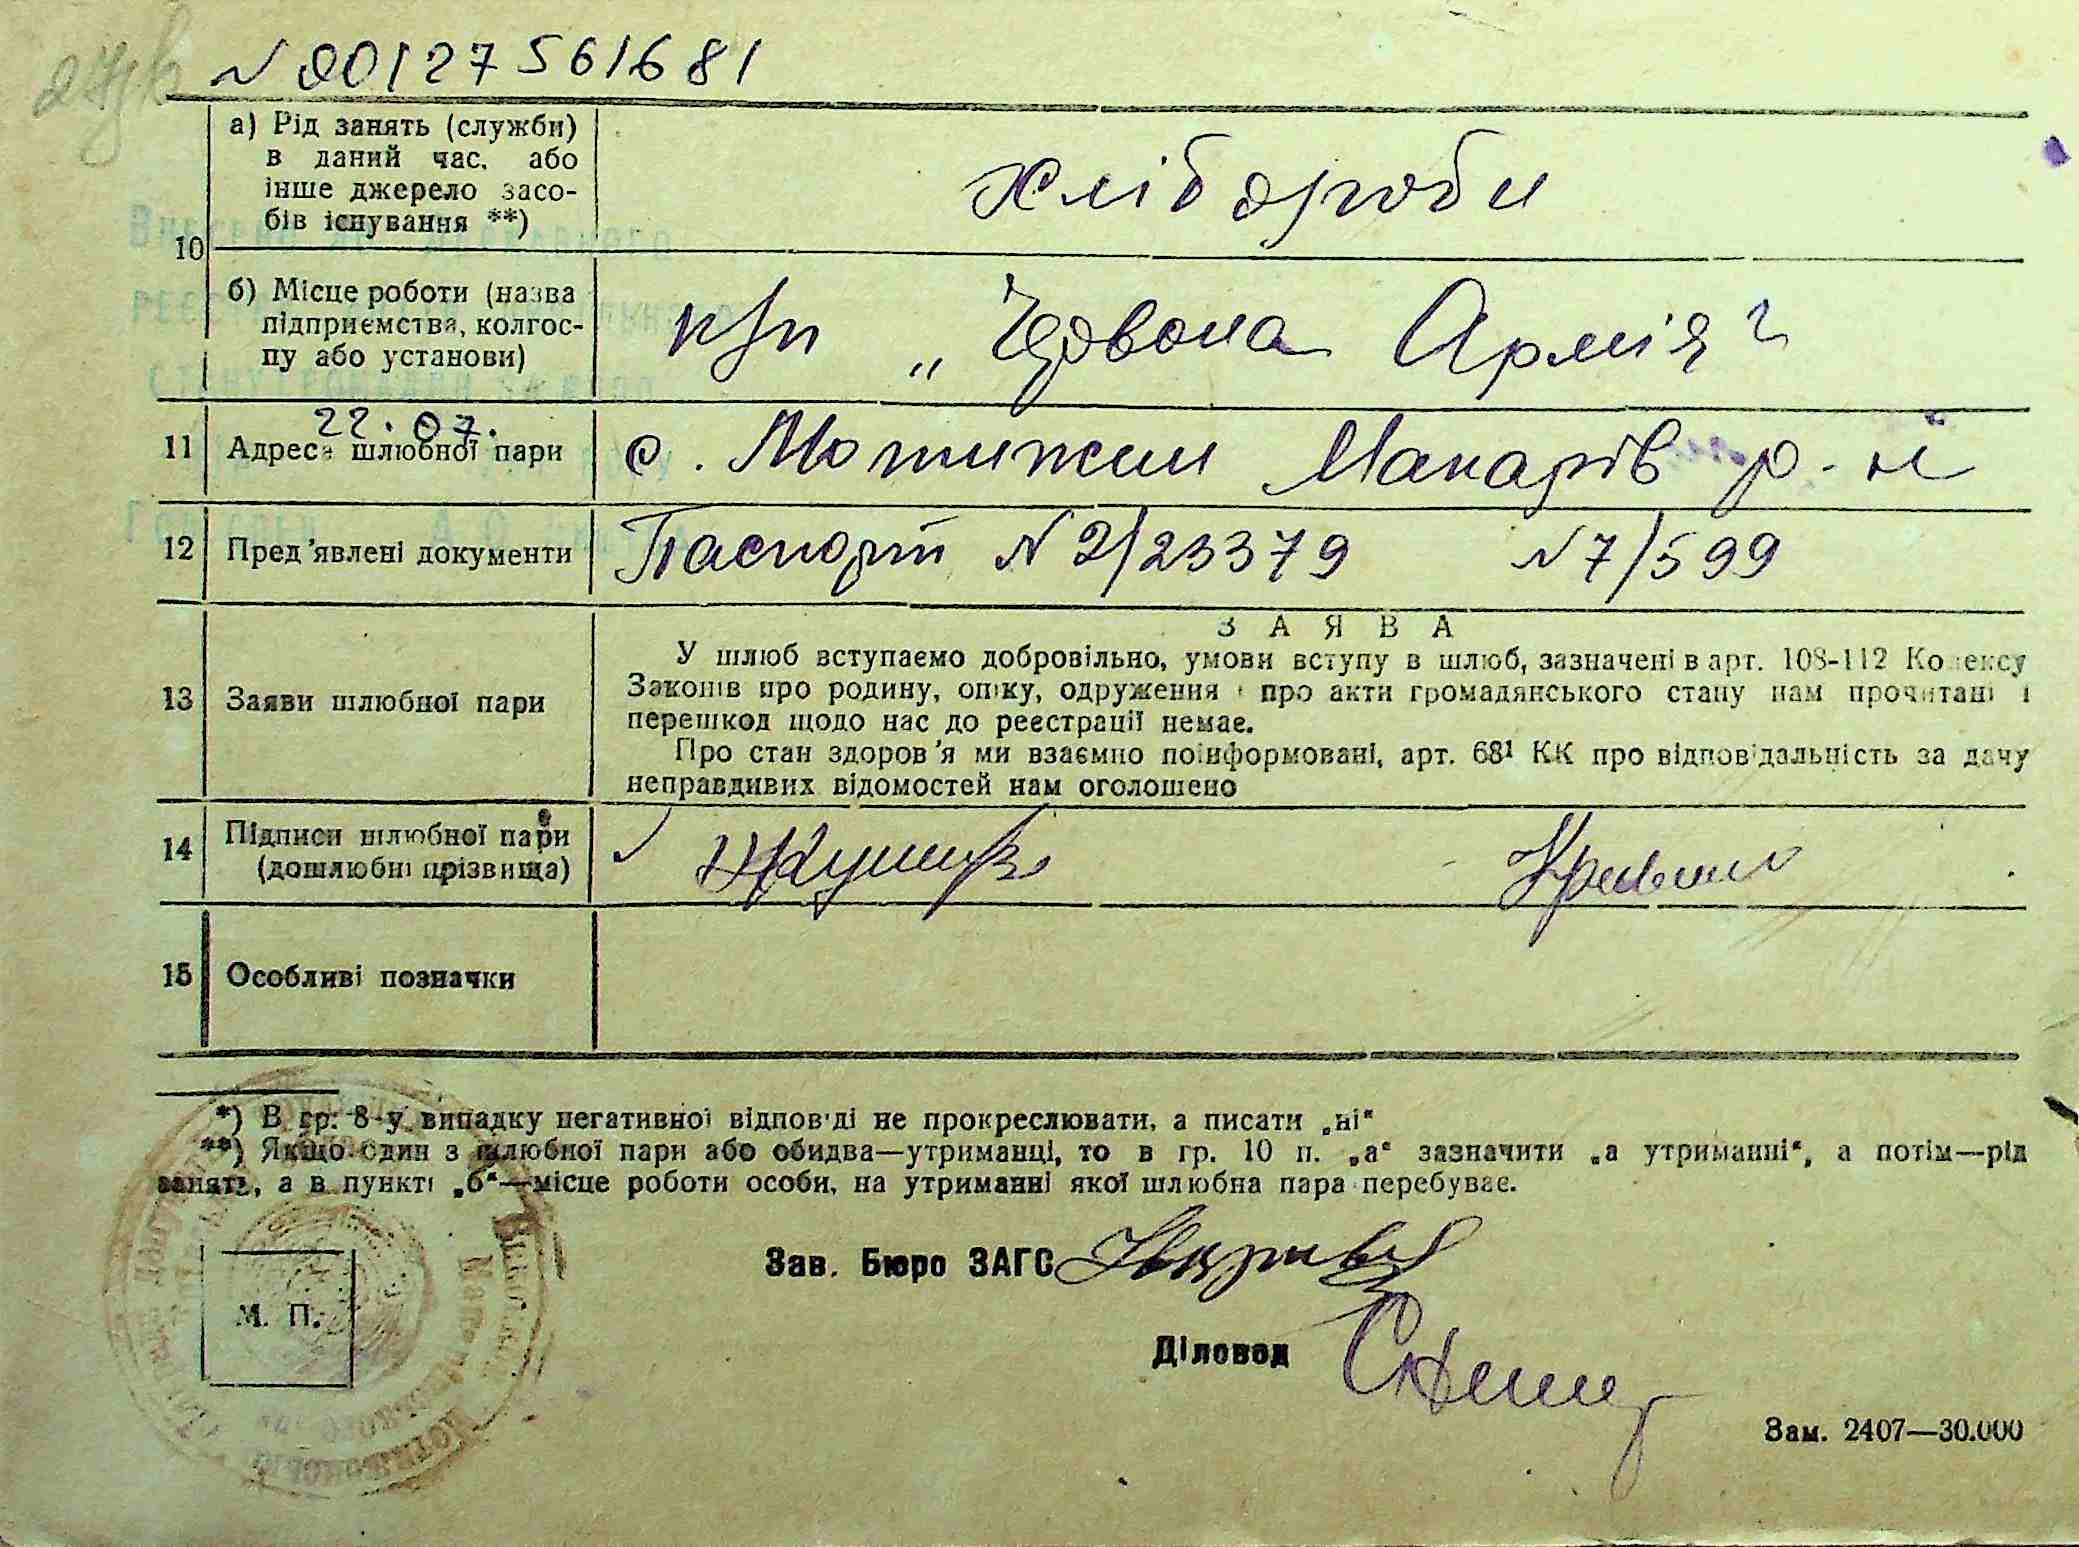 N 00127561681
10
а) Рід занять (служби)
в даний час, або
інше джерело засо-
бів існування **)
хлібороби
б) Місце роботи (назва
підприємства, колгос-
пу або установи)
к/г „Червона Армія"
22.07.
11 Адреса шлюбної пари с. Мотижин Макарів р-н
12 Пред'явлені документи Паспорт N 2/23379 N 7/599
13 Заяви шлюбної пари
ЗАЯВА
У шлюб вступаємо добровільно, умови вступу в шлюб, зазначені в арт. 108-112 Кодексу
Законів про родину, опіку, одруження і про акти громадянського стану нам прочитані і
перешкод щодо нас до реєстрації немає.
Про стан здоров'я ми взаємно поінформовані, арт. 68¹ КК про відповідальність за дачу
неправдивих відомостей нам оголошено
14 Підписи шлюбної пари
(дошлюбні прізвища)
15 Особливі позначки
*) В гр. 8-у випадку негативної відповіді не прокреслювати, а писати „ні“
**) Якщо один з шлюбної пари або обидва—утриманці, то в гр. 10 п. „а“ зазначити „а утриманні“, а потім—рід
занять, а в пункті „б“—місце роботи особи, на утриманні якої шлюбна пара перебуває.
Зав. Бюро ЗАГС
М. П.
Діловод
Зам. 2407—30.000